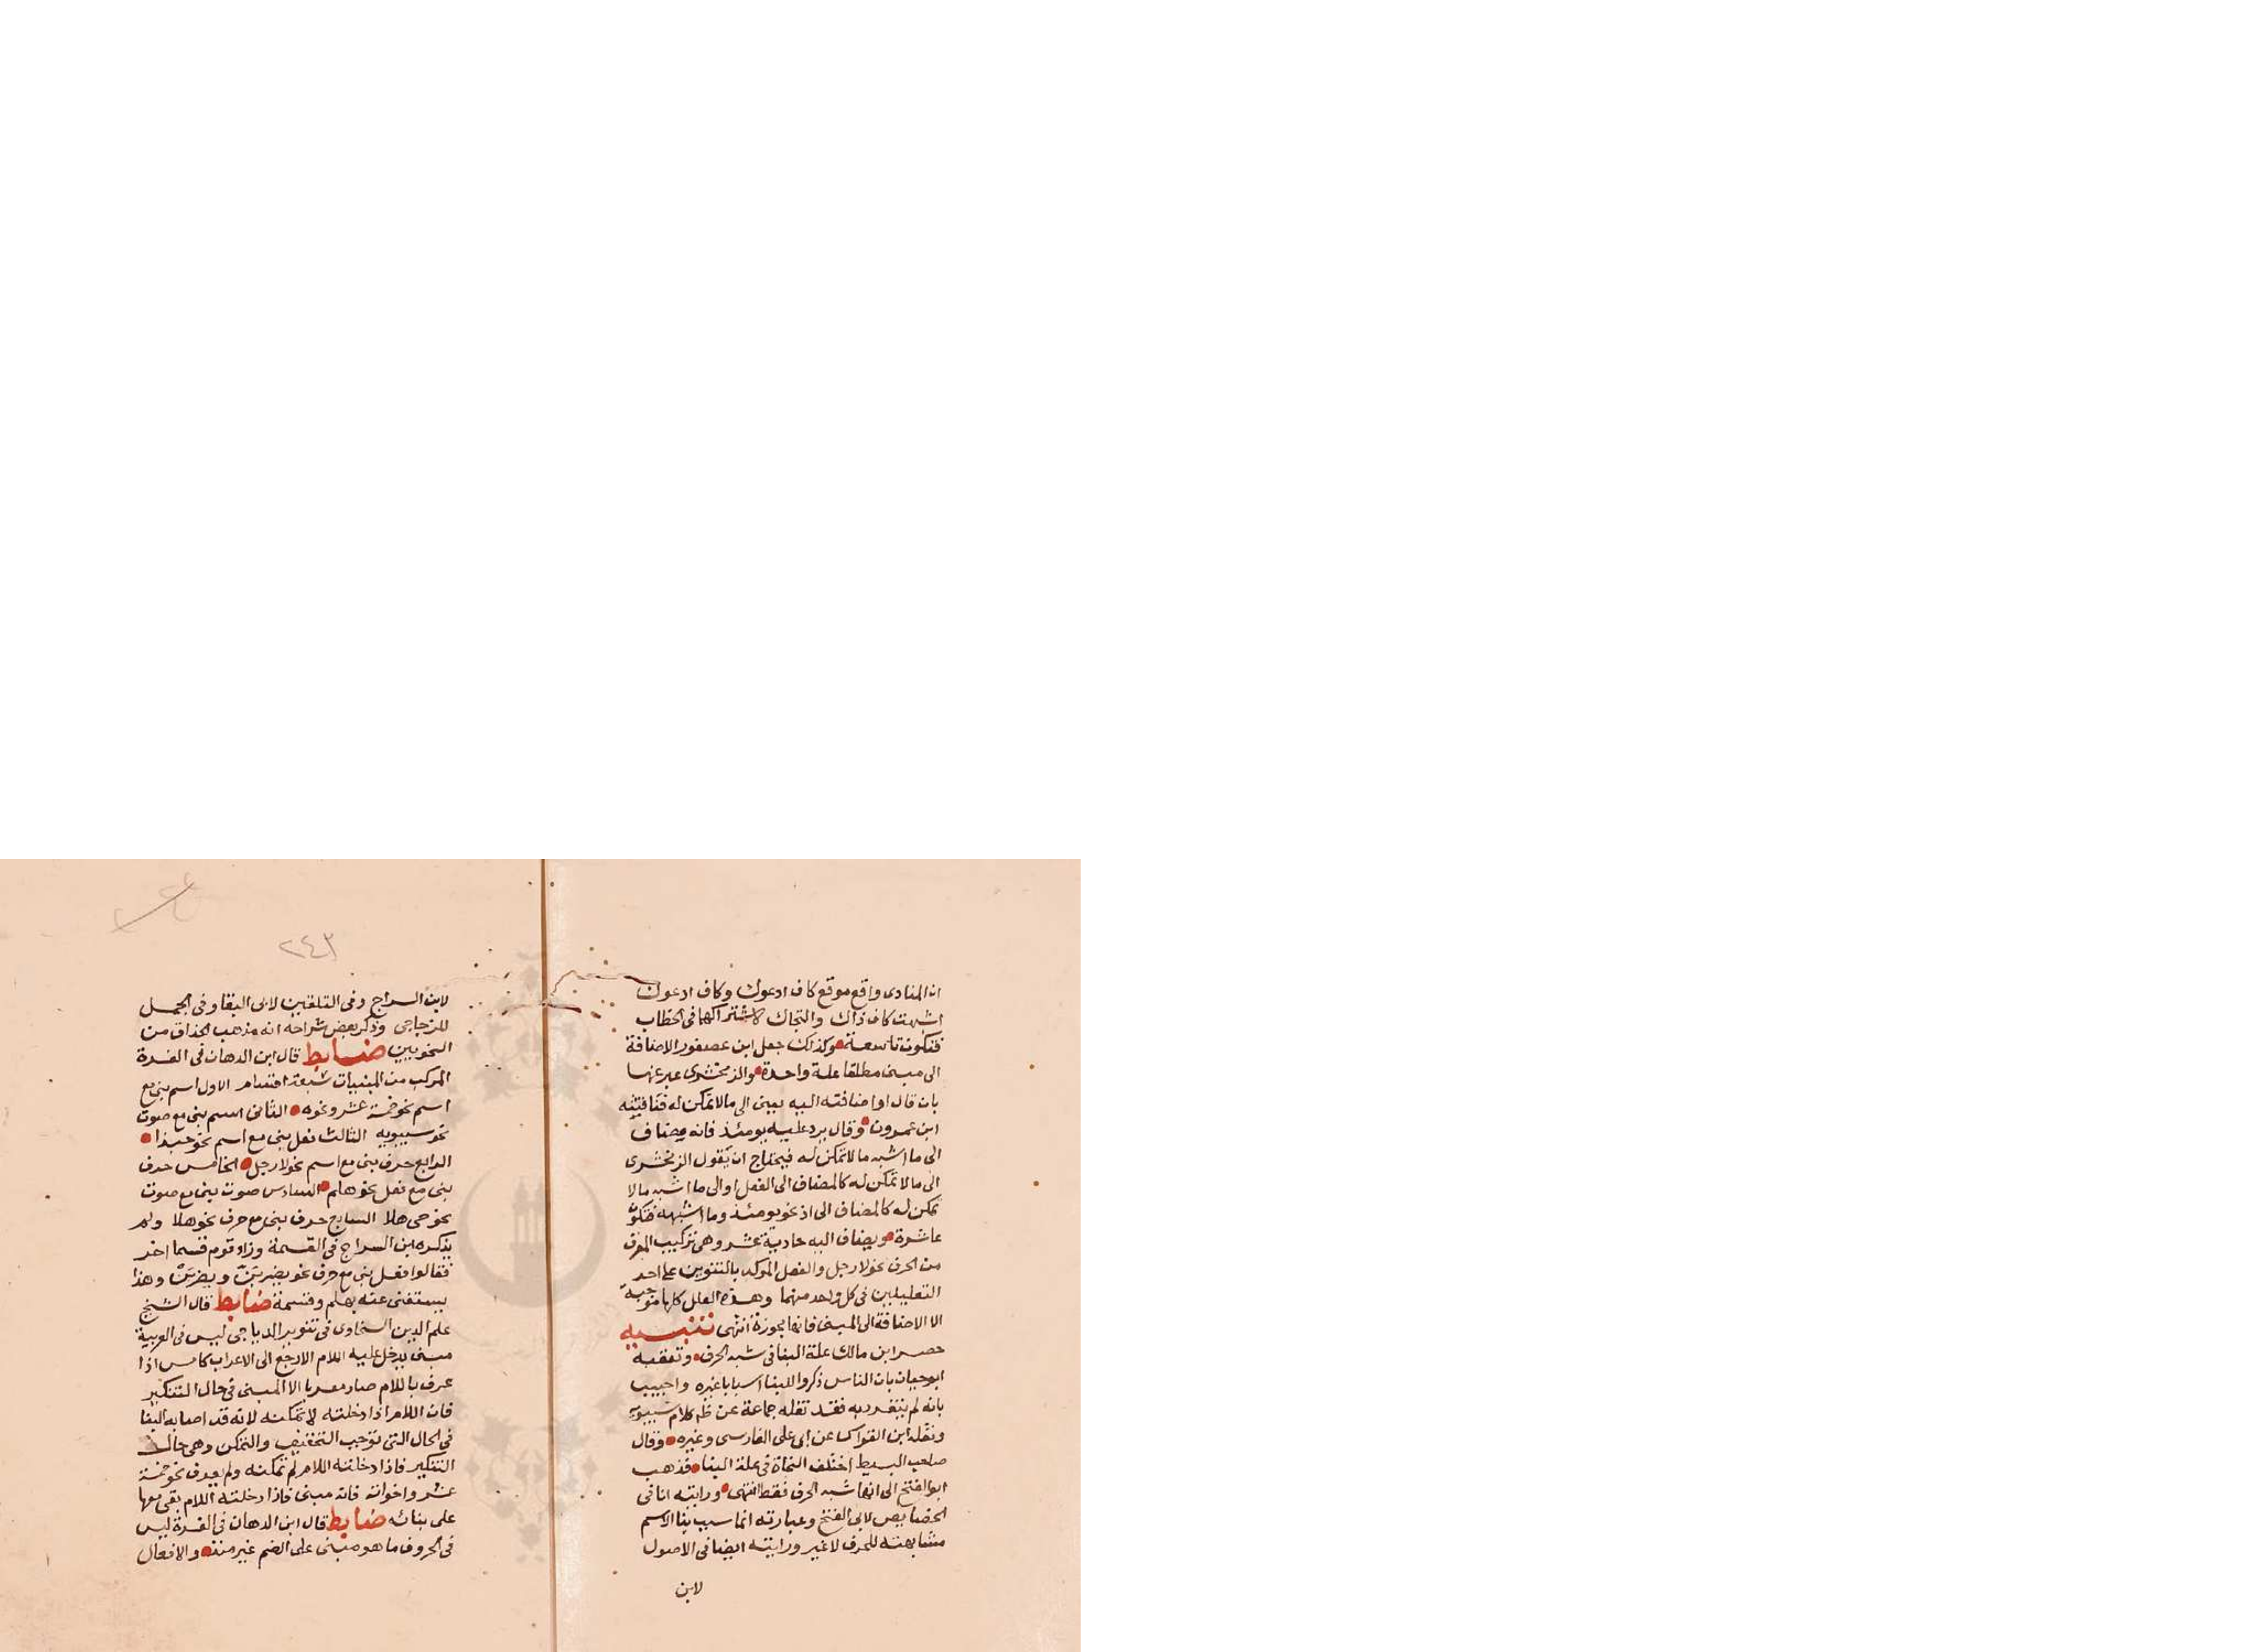 ان المنادى واقع موقع كاف ادعوك وكاف ادعوك
اشبهت كاف ذاك والنجاك لاشتراكهما فى الخطاب
فتكون تاسعة وكذلك جعل ابن عصفور الاضافة
الى مبنى مطلقا علة واحدة والزمخشرى عبر عنها
بان قال او اضافته اليه يعنى الى مالا تمكن له
ابن عمرون وقال يرد عليه يومئذ فانه مضاف
الى ما اشبه ما لا تمكن له فيحتاج ان يقول الزمخشرى
الى مالا تمكن له كالمضاف الى الفعل او الى ما اشبه مالا
تمكن له كالمضاف الى اذ نحو يومئذ وما اشبهه فتكون
عاشرة ويضاف اليه حادية عشر وهى تركيب المعرف
من الحرف نحو لا رجل والفعل الموكد بالتنوين على احد
التعليلين فى كل واحد منهما وهذه العلل كلها موجبة
الا الاضافة الى المبنى فانها مجوزة انتهى تنبيه
حصر ابن مالك علة البنا فى شبه الحرف وتعقبه
ابو حيان بان الناس ذكروا للبنا اسبابا غيره واجيب
بانه لم ينفرد به فقد نقله جماعة عن ظاهر كلام سيبويه
ونقله ابن القواس عن ابى على الفارسى وغيره وقال
صاحب البسيط اختلف النحاة فى علة البنا فذهب
ابو الفتح الى انها شبه الحرف فقط انتهى ورايته انا فى
الخصايص لابى الفتح وعبارته انما سبب بنا الاسم
مشابهته للحرف لا غير ورايته ايضا فى الاصول
لابن
٢٤٣
لابن السراج وفى التلقين لابى البقا وفى الجمل
للزجاجى وذكر بعض شراحه انه مذهب الحذاق من
النحويين ضابط قال ابن الدهان فى الغرة
المركب من المبنيات سبعة اقسام الاول اسم بنى مع
اسم نحو خمسة عشر ونحوه الثانى اسم بنى مع صوت
نحو سيبويه الثالث فعل بنى مع اسم نحو حبذا
الرابع حرف بنى مع اسم نحو لا رجل الخامس حرف
بنى مع فعل نحو هلم السادس صوت بنى مع صوت
نحو حى هلا السابع حرف بنى مع حرف نحو هلا ولم
يذكره ابن السراج فى القسمة وزاد قوم قسما اخر
فقالوا فعل بنى مع حرف نحو يضربن ويضربن وهذا
يستغنى عنه بهلم وقسمة ضابط قال الشيخ
علم الدين السخاوى فى تنوير الدياجى ليس فى العربية
مبنى يدخل عليه اللام الا رجع الى الاعراب كامس اذا
عرف باللام صار معربا الا المبنى فى حال التنكير
فان اللام اذا دخلته لا تمكنه لانه قد اصابه البنا
فى الحال التى توجب التخفيف والتمكن وهى حال
التنكير فاذا دخلته اللام لم تمكنه ولم يعرف نحو خمسة
عشر واخواته فانه مبنى فاذا دخلته اللام بقى معها
على بنائه ضابط قال ابن الدهان فى الغرة ليس
فى الحروف ما هو مبنى على الضم غير منذ والافعال